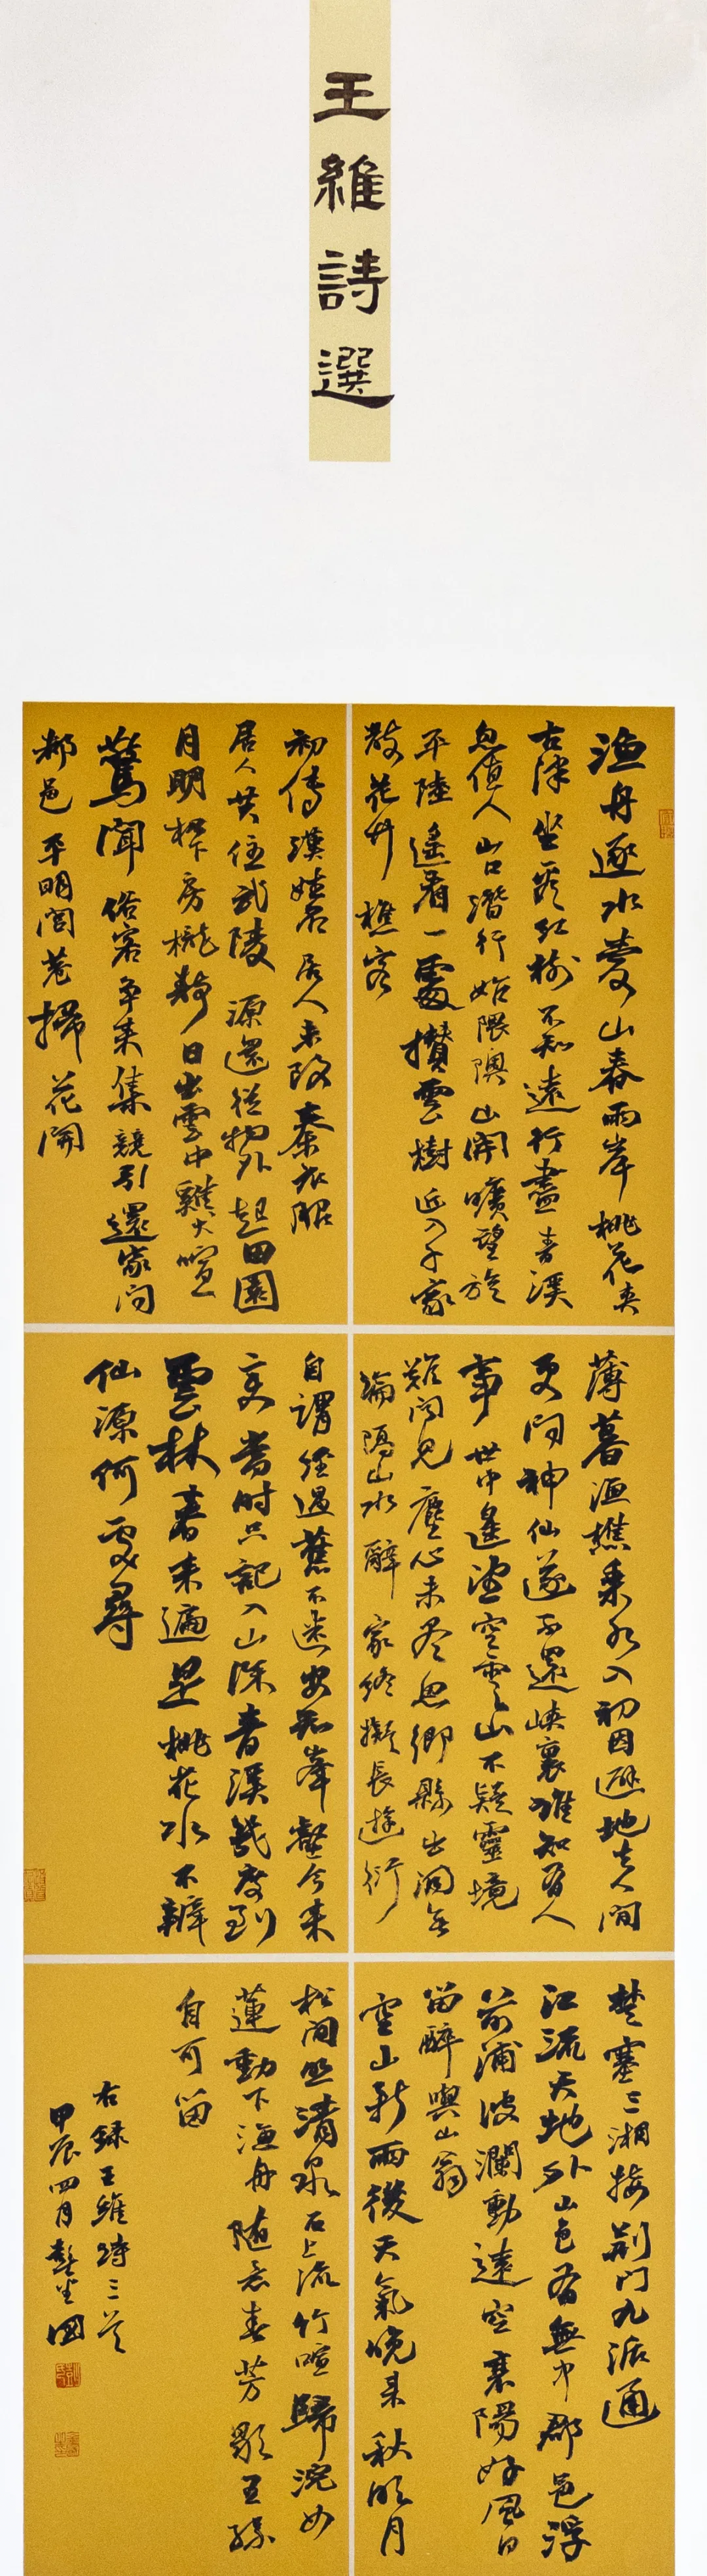 王維詩選
漁舟逐水愛山春兩岸桃花夾
古津坐看紅樹不知遠行盡青溪
忽值人山口潛行始隈隩山開曠望旋
平陸遙看一處攢雲樹近入千家
散花竹樵客
初傳漢姓名居人未改秦衣服
居人共住武陵源還從物外起田園
月明松下房櫳靜日出雲中雞犬喧
驚聞俗客爭來集競引還家問
都邑平明閭巷掃花開
薄暮漁樵乘水入初因避地去人間
更問神仙遂不還峽裏誰知有人
事世中遙望空雲山不疑靈境
難聞見塵心未盡思鄉縣出洞無
論隔山水辭家終擬長遊衍
自謂經過舊不迷安知峯壑今來
變當時只記入山深青溪幾度到
雲林春來遍是桃花水不辨
仙源何處尋
楚塞三湘接荊門九派通
江流天地外山色有無中郡邑浮
前浦波瀾動遠空襄陽好風日
留醉與山翁
空山新雨後天氣晚來秋明月
松間照清泉石上流竹喧歸浣女
蓮動下漁舟隨意春芳歇王孫
自可留
右録王維詩三首
甲辰四月